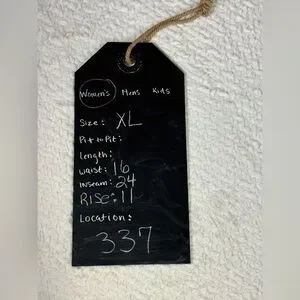 Women's Mens Kids
Size: XL
Pit to Pit:
Length:
Waist: 16
Inseam: 24
RISE: 11
Location:
337